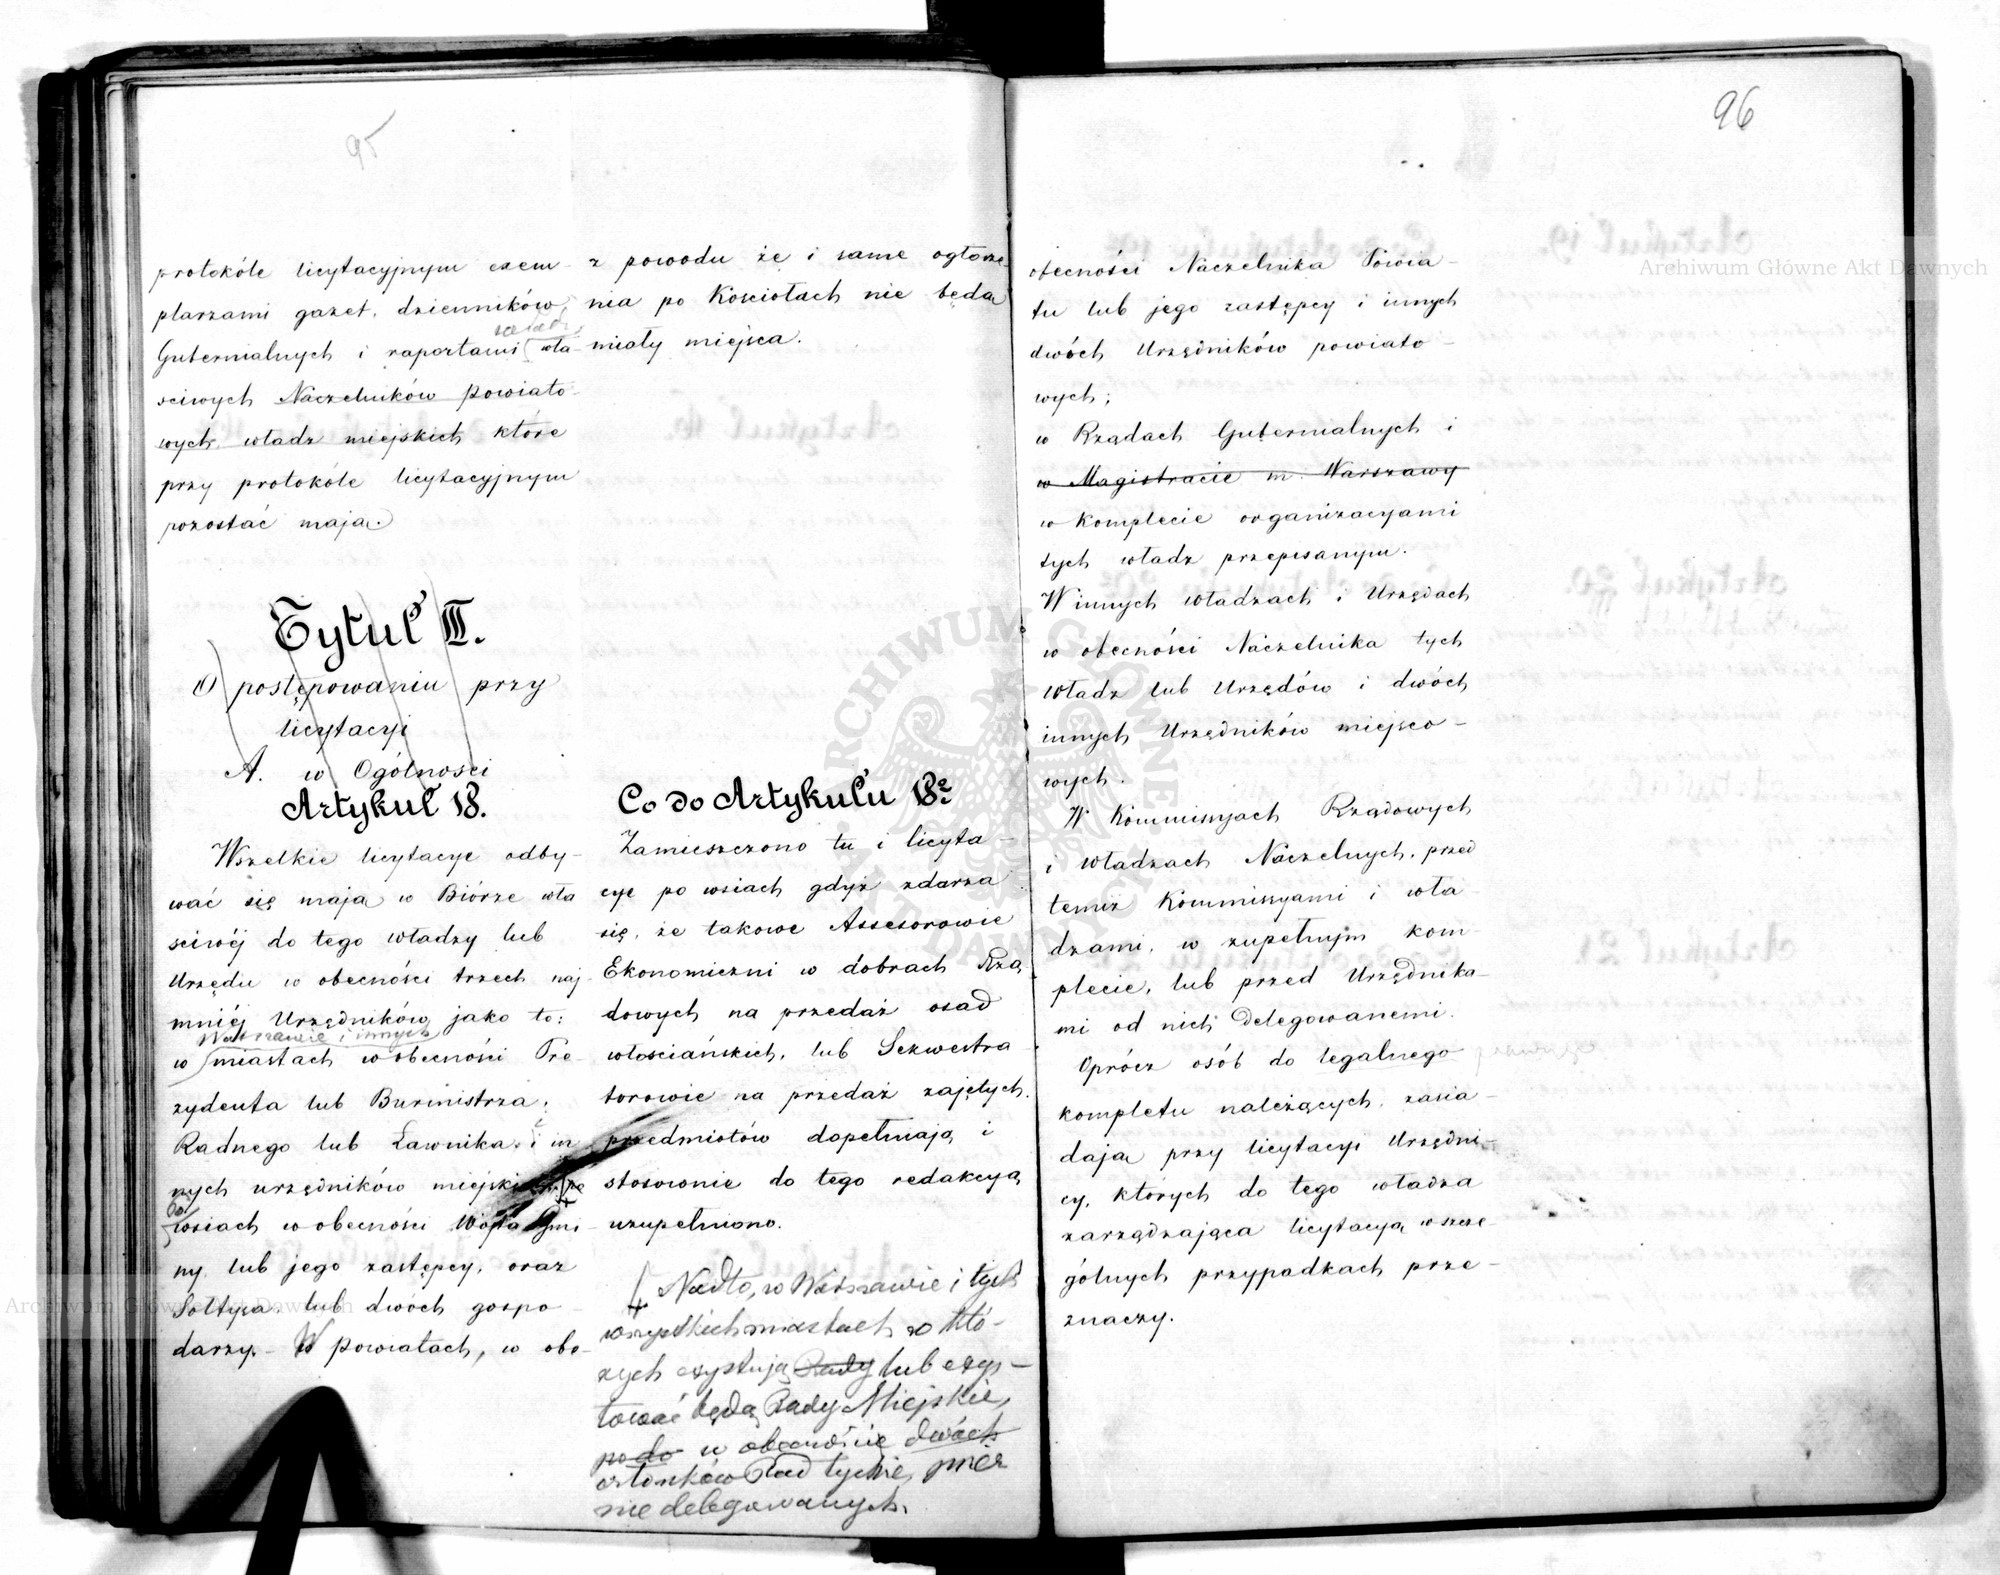 95
protokóle licytacyjnym exem-
plarzami gazet, dzienników
Gubernialnych i raportami wła-
ściwych Naczelników powiato-
wych, władz miejskich które
przy protokóle licytacyjnym
pozostać mają.
Tytuł III.
O postępowaniu przy
licytacyi
A. w Ogólności
Artykuł 18.
Wszelkie licytacye odby-
wać się mają w Biórze wła
ściwéj do tego władzy lub
Urzędu w obecności trzech naj-
mniéj Urzędników, jako to:
Warszawie i innych
w miastach w obecności Pre-
zydenta lub Burmistrza,
Radnego lub Ławnika i in
nych urzędników
wsiach w obecności Wójta Gmi-
ny lub jego zastępcy, oraz
Sołtysa lub dwóch gospo-
darzy. - W powiatach, w obe-
z powodu że i same ogłosze-
nia po Kościołach nie będą
miały miejsca.
Co do Artykułu 18º
Zamieszczono tu i licyta-
cye po wsiach gdyż zdarza
się, że takowe Assesorowie
Ekonomiczni w dobrach Rzą
dowych na przedaż osad
włościańskich, lub Sekwestra
torowie na przedaż zajętych
przedmiotów dopełniają i
stosownie do tego redakcyą
uzupełniono.
Nadto, w Warszawie i tych
wszystkich miastach w któ-
rych exystują Rady lub exys-
tować będą Rady Miejskie,
w obecności dwóch
członków Rad tychże, przez
nie delegowanych.
96
obecności Naczelnika Powia-
tu lub jego zastępcy i innych
dwóch Urzędników powiato-
wych;
w Rządach Gubernialnych i
w Magistracie m. Warszawy
w komplecie organizacyami
tych władz przepisanym.
W innych władzach i Urzędach
w obecności Naczelnika tych
Władz lub Urzędów i dwóch
innych Urzędników miejsco-
wych.
W Kommissyach Rządowych
i władzach Naczelnych, przed
temiż Kommissyami i wła-
dzami, w zupełnym kom-
plecie, lub przed Urzędnika-
mi od nich delegowanemi.
Oprócz osób do legalnego
kompletu należących, zasia-
dają przy licytacyi Urzędni-
cy, których do tego władza
zarządzająca licytacyą w szcze-
gólnych przypadkach prze-
znaczy.
Archiwum Główne Akt Dawnych
Archiwum Główne Akt Dawnych
ARCHIWUM GŁÓWNE AKT DAWNYCH